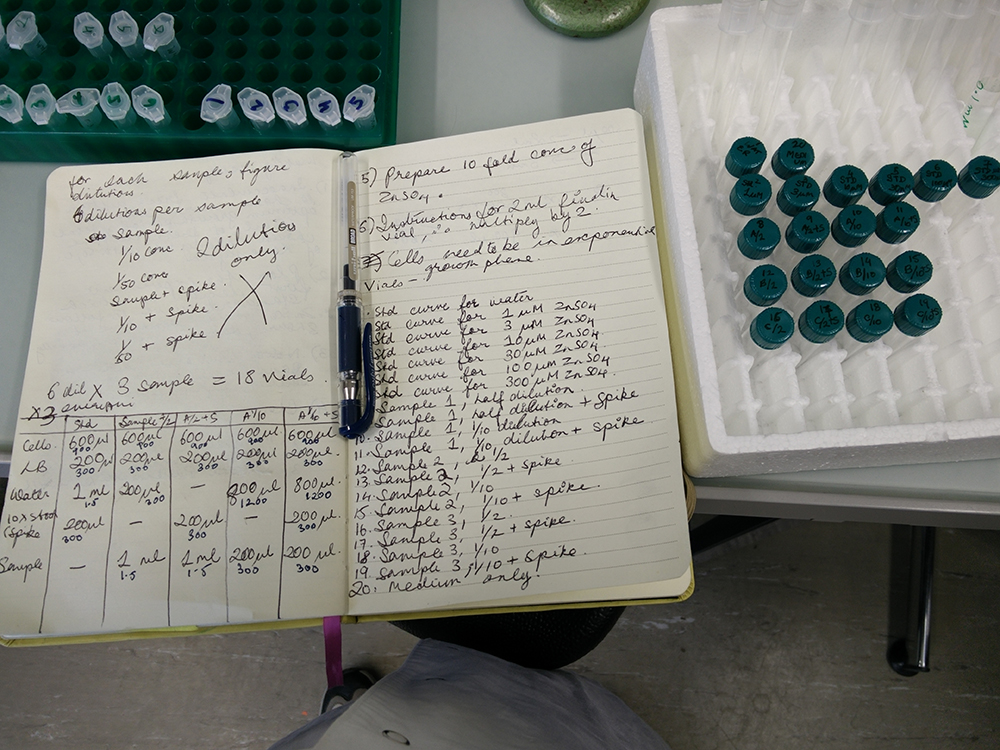 for each sample, figure
dilutions
6 dilutions per sample
Sample.
1/10 conc
2 dilution
only.
1/50 conc
Sample + spike.
1/10 + spike.
1/50 + spike
6 dil X 3 Sample = 18 Vials.
X3
Std Sample 1/2 A/2 + S A 1/10 A 1/10 + S
Cells. 600µl 600µl 600µl 600µl 600µl
900 900 900 900 900
LB 200µl 200µl 200µl 200µl 200µl
300 300 300 300 300
Water 1 ml 200µl — 800µl 800µl
1.5 300 1200 1200
10x Stock 200µl — 200µl — 200µl
(Spike 300 300 300
Sample — 1 ml 1 ml 200µl 200µl.
1.5 1.5 300 300
5) Prepare 10 fold conc of
ZnSO4.
6) Instructions for 2ml final in
vial, ∴ multiply by 2.
7) Cells need to be in exponential
growth phase.
Vials —
Std curve for water
Std curve for 1 µM ZnSO4
Std curve for 3 µM ZnSO4
Std curve for 10 µM ZnSO4
Std curve for 30 µM ZnSO4
Std curve for 100 µM ZnSO4
Std curve for 300 µM ZnSO4.
Sample 1, half dilution.
Sample 1, half dilution + Spike
10. Sample 1, 1/10 dilution
11. Sample 1, 1/10 dilution + spike
12. Sample 2, 1/2
13. Sample 2, 1/2 + spike.
14. Sample 2, 1/10
15. Sample 2, 1/10 + spike.
16. Sample 3, 1/2.
17. Sample 3, 1/2 + spike.
18. Sample 3, 1/10
19. Sample 3, 1/10 + spike.
20. Medium only.
1 2 3 4 5
20
8 A/2
9 A/2+S
10 A/10
11 A/10+S
12 B/2
B/2+S
14 B/10
15 B/10+S
16 C/2
17 C/2+S
18 C/10
19 C/10+S